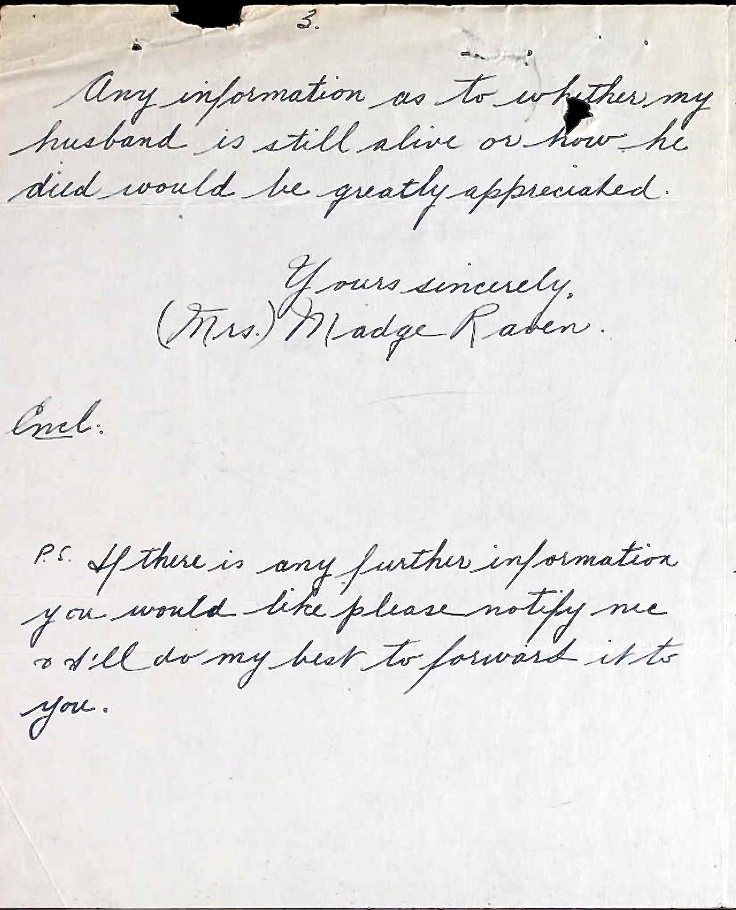 3.
Any information as to whether my
husband is still alive or how he
died would be greatly appreciated.
Yours sincerely,
(Mrs.) Madge Raven.
Encl.
P.S. If there is any further information
you would like please notify me
& I'll do my best to forward it to
you.